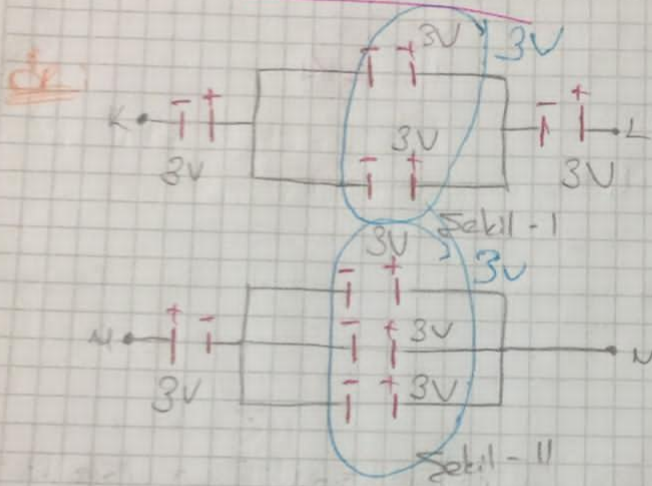 ör
3V 3V
- + - +
K - + 3V - + L
3V - + 3V
Şekil - I
3V 3V
- +
M + - - + 3V N
3V - + 3V
Şekil - II